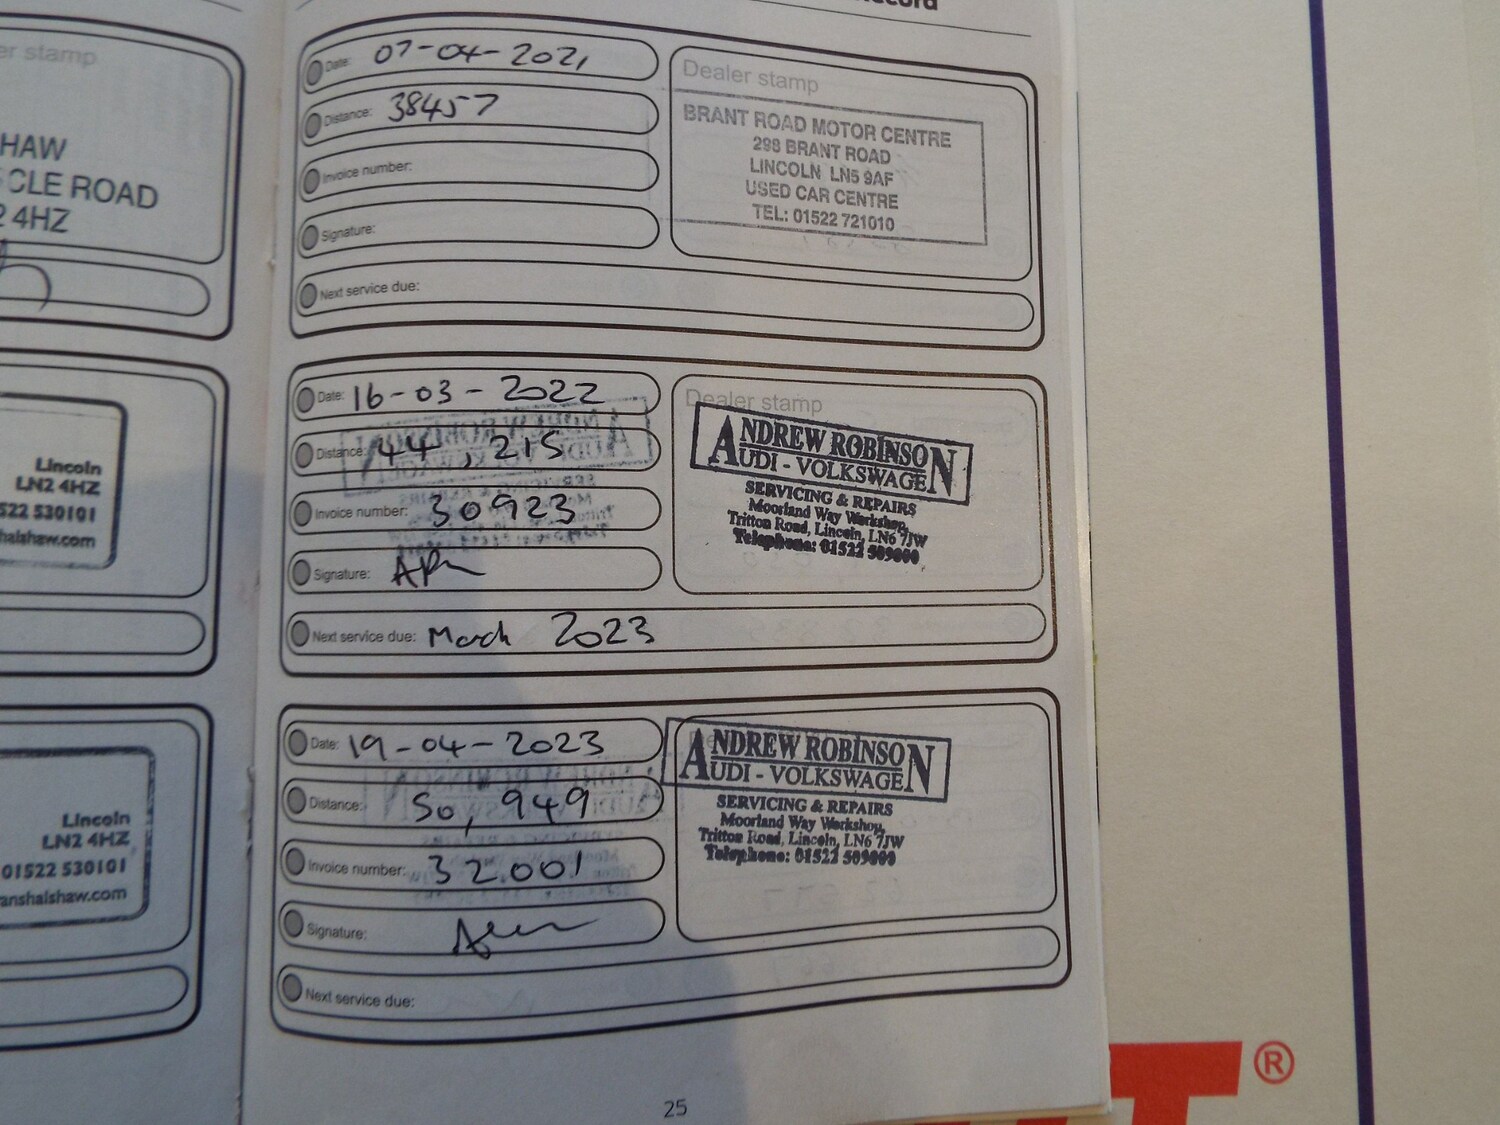 er stamp
HAW
CLE ROAD
2 4HZ
Lincoln
LN2 4HZ
522 530101
halshaw.com
Lincoln
LN2 4HZ
01522 530101
anshalshaw.com
ecord
Date: 07-04-2021
Distance: 38457
Invoice number:
Signature:
Next service due:
Dealer stamp
BRANT ROAD MOTOR CENTRE
298 BRANT ROAD
LINCOLN LN5 9AF
USED CAR CENTRE
TEL: 01522 721010
Date: 16-03-2022
Distance: 44,215
Invoice number: 30923
Signature:
Next service due: March 2023
Dealer stamp
ANDREW ROBINSON
AUDI - VOLKSWAGEN
SERVICING & REPAIRS
Moorland Way Workshop,
Tritton Road, Lincoln, LN6 7JW
Telephone: 01522 509000
Date: 19-04-2023
Distance: 50,949
Invoice number: 32001
Signature:
Next service due:
ANDREW ROBINSON
AUDI - VOLKSWAGEN
SERVICING & REPAIRS
Moorland Way Workshop,
Tritton Road, Lincoln, LN6 7JW
Telephone: 01522 509000
25
®